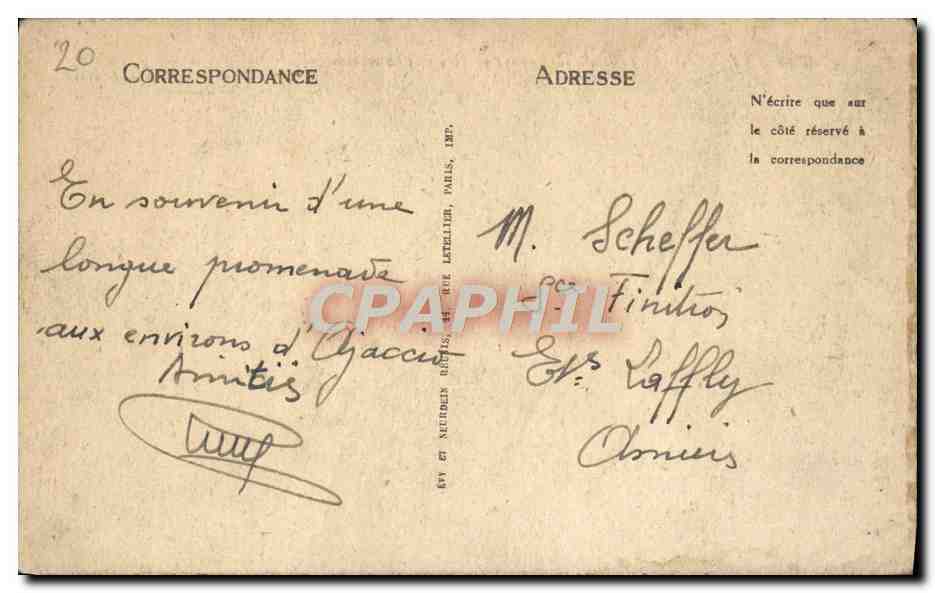 20
CORRESPONDANCE
ADRESSE
N'écrire que sur
le côté réservé à
la correspondance
En souvenir d'une
longue promenade
aux environs d'Ajaccio
Amitiés
LEVY ET NEURDEIN RÉUNIS, 44, RUE LETELLIER, PARIS, IMP.
M. Scheffer
Sce Finition
Ets Laffly
Asnières
CPAPHIL